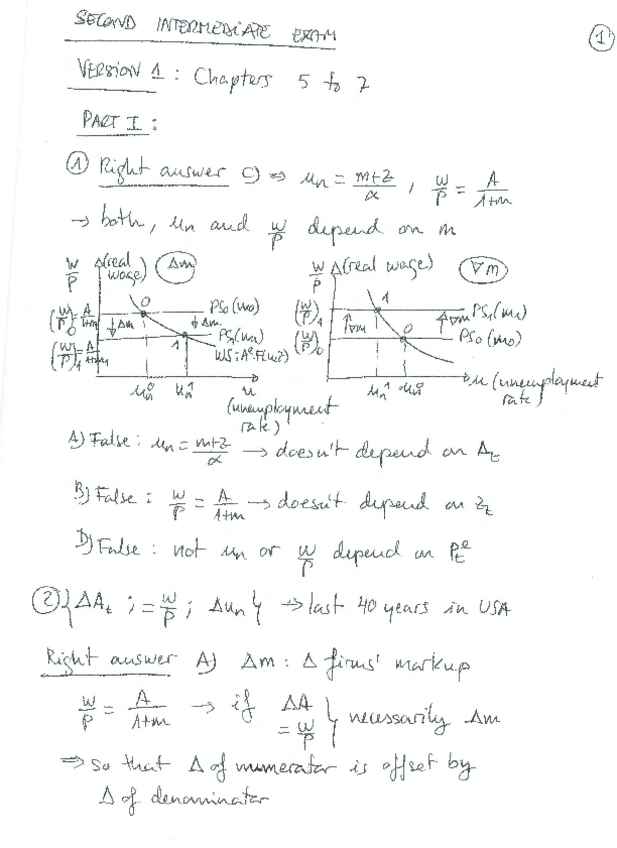 SECOND INTERMEDIATE EXAM
1
VERSION 1 : Chapters 5 to 7
PART I :
① Right answer C) ⇒ un = m+z/α , W/P = A/1+m
→ both, un and W/P depend on m
W/P Δ(real wage) Δm
(W/P)0 = A/1+m
(W/P)1 = A/1+m1
0
1
↓Δm
↓Δm
PS0(m0)
PS1(m1)
WS: Ae·F(u,z)
un0 un1 u (unemployment rate)
W/P Δ(real wage) ∇m
(W/P)1
(W/P)0
1
0
↑∇m
↑∇m
PS1(m1)
PS0(m0)
un1 un0 u (unemployment rate)
A) False : un = m+z/α → doesn't depend on At
B) False : W/P = A/1+m → doesn't depend on zt
D) False : not un or W/P depend on Pte
② {ΔAt ; = W/P ; Δun} → last 40 years in USA
Right answer A) Δm : Δ firms' markup
W/P = A/1+m → if ΔA = W/P } necessarily Δm
⇒ so that Δ of numerator is offset by
Δ of denominator